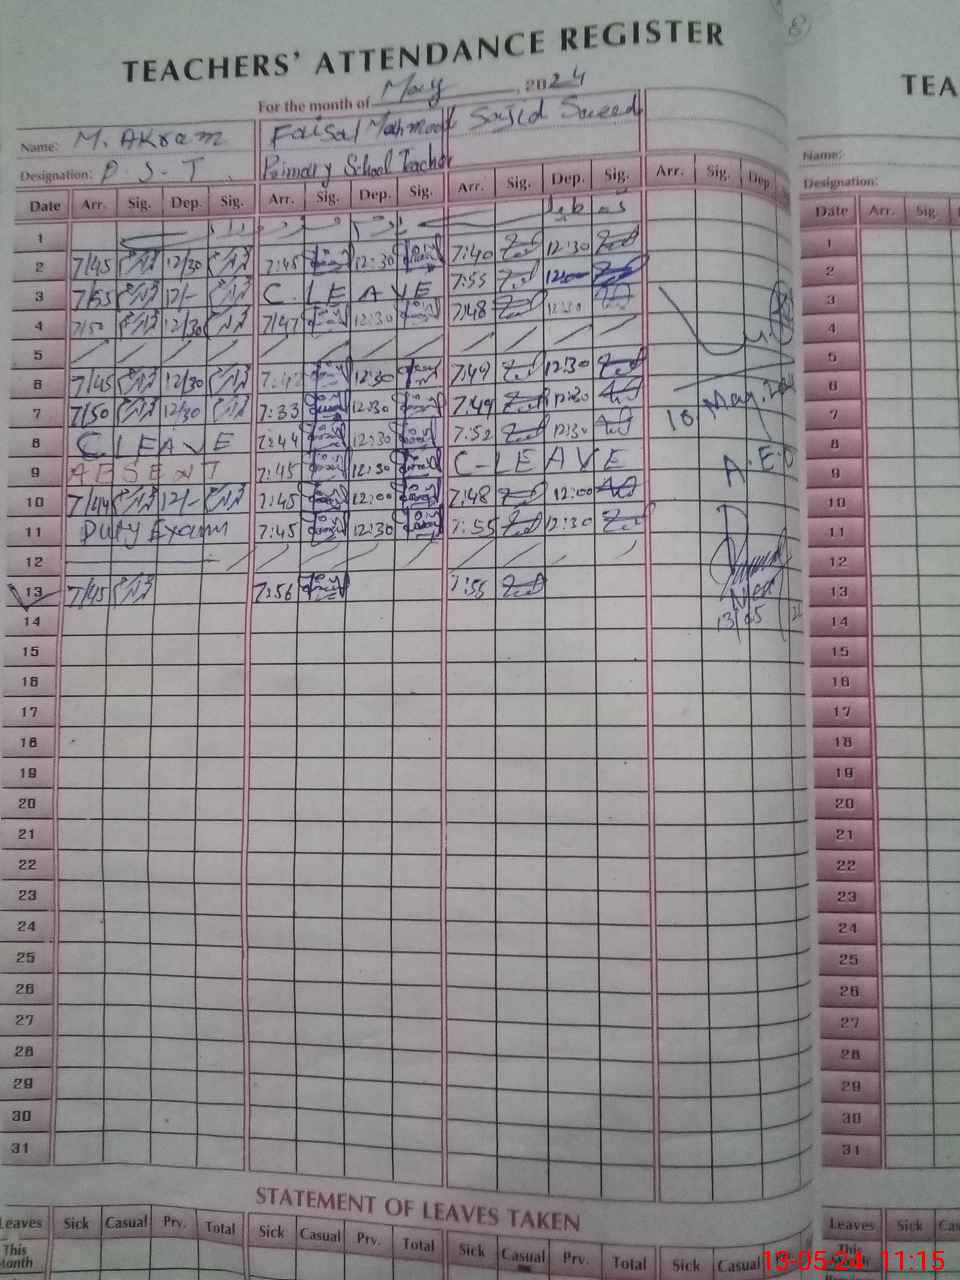 TEACHERS' ATTENDANCE REGISTER
For the month of May, 2024
Name: M. AKram Faisal Mahmood Sajid Saeed
Designation: P.S.T. Primary School Teacher
Date Arr. Sig. Dep. Sig. Arr. Sig. Dep. Sig. Arr. Sig. Dep. Sig. Arr. Sig. Dep.
1
2 7/45 12/30 7:45 12:30 7:40 12:30
3 7/55 12/- C. LEAVE 7:55
4 7/50 12/30 7/47 12:30 7:48 12:30
5
6 7/45 12/30 12:30 7:49 12:30
7 7/50 12/30 7:33 12:30 7:49 12:30
8 C LEAVE 7:44 12:30 7:52 12:30
9 ABSENT 7:45 12:30 C-LEAVE
10 7/44 12/- 7:45 12:00 7:48 12:00
11 Duty Exam 7:45 12:30 7:55 12:30
12
13 7/45 7:56 7:55
14
15
16
17
18
19
20
21
22
23
24
25
26
27
28
29
30
31
10 May.
A.E.O
13/05
STATEMENT OF LEAVES TAKEN
Leaves Sick Casual Prv. Total Sick Casual Prv. Total Sick Casual Prv. Total Sick Casual Prv.
This Month
TEA
Name:
Designation:
Date Arr. Sig.
1
2
3
4
5
6
7
8
9
10
11
12
13
14
15
16
17
18
19
20
21
22
23
24
25
26
27
28
29
30
31
Leaves Sick
13-05-24 11:15